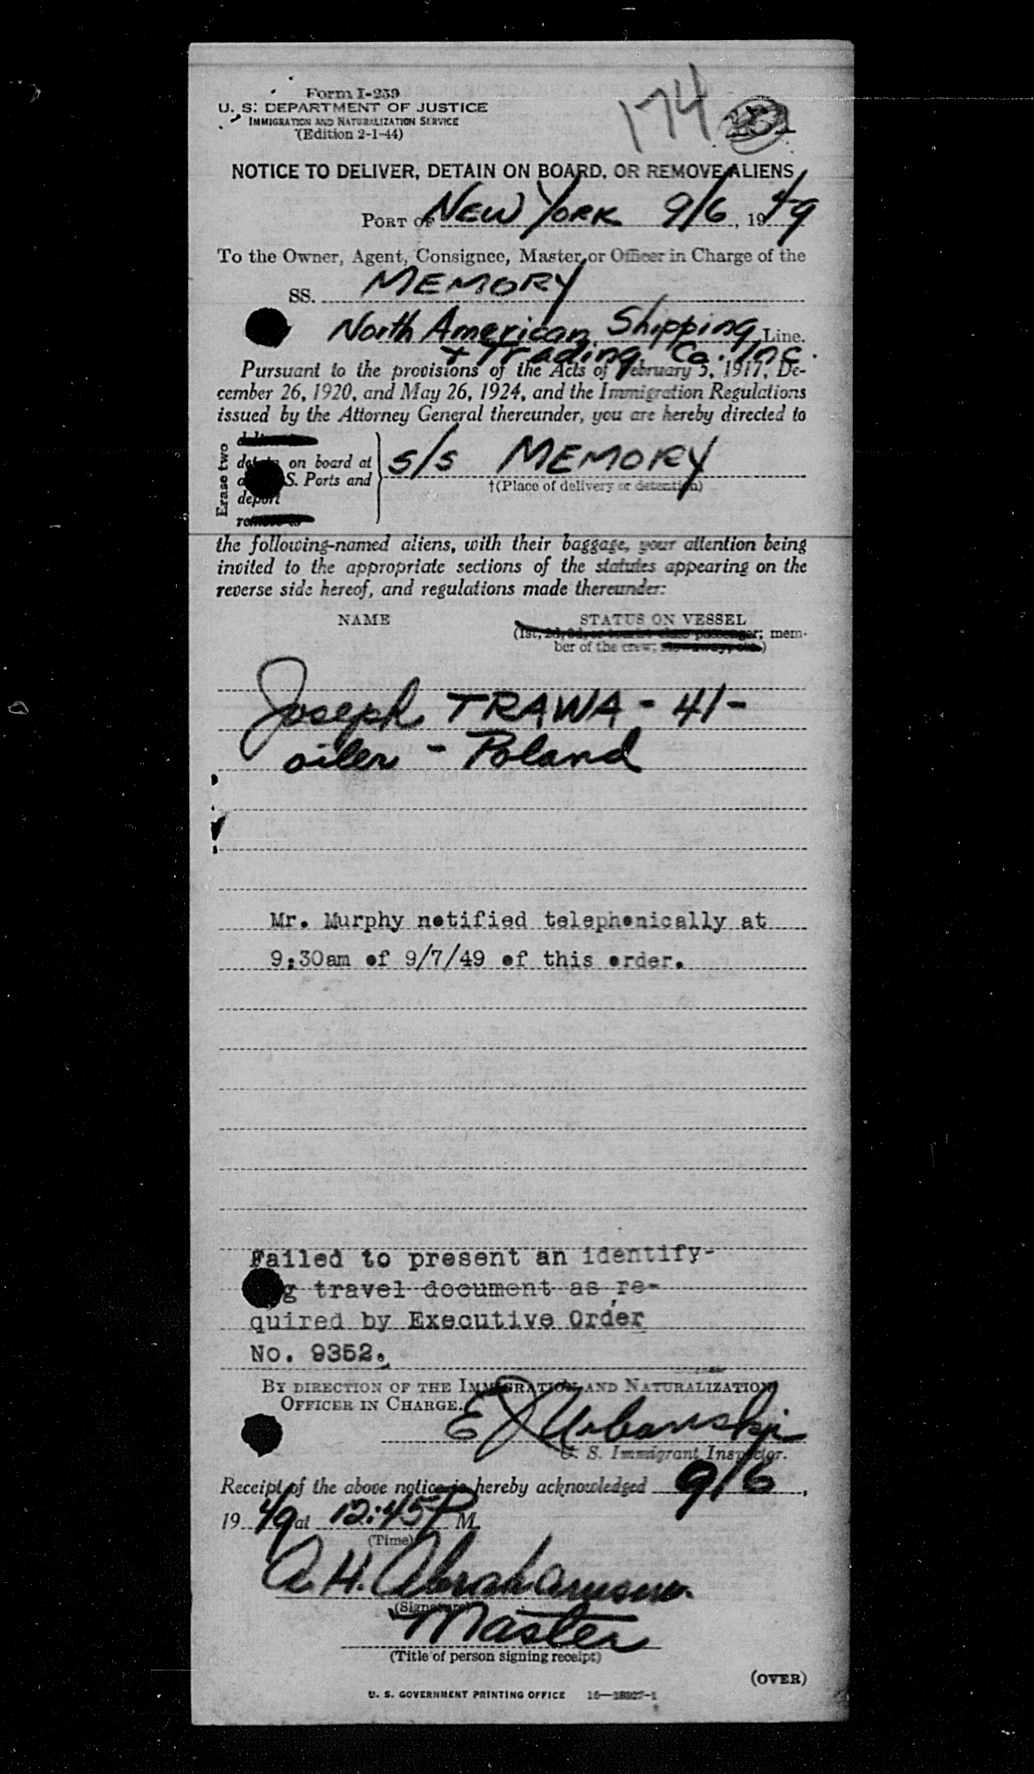 Form I-259
U. S. DEPARTMENT OF JUSTICE
IMMIGRATION AND NATURALIZATION SERVICE
(Edition 2-1-44)
174
NOTICE TO DELIVER, DETAIN ON BOARD, OR REMOVE ALIENS
PORT OF NEW YORK 9/6, 1949
To the Owner, Agent, Consignee, Master or Officer in Charge of the
SS. MEMORY
North American Shipping Line.
+ Trading Co. Inc.
Pursuant to the provisions of the Acts of February 5, 1917, De-
cember 26, 1920, and May 26, 1924, and the Immigration Regulations
issued by the Attorney General thereunder, you are hereby directed to
Erase two
on board at
S. Ports and
deport
s/s MEMORY
†(Place of delivery or detention)
the following-named aliens, with their baggage, your attention being
invited to the appropriate sections of the statutes appearing on the
reverse side hereof, and regulations made thereunder:
NAME STATUS ON VESSEL
(1st, 2d, 3d, or tourist class passenger; mem-
ber of the crew; stowaway, etc.)
Joseph TRAWA - 41 -
oiler - Poland
Mr. Murphy notified telephonically at
9:30am of 9/7/49 of this order.
Failed to present an identify-
g travel document as re-
quired by Executive Order
No. 9352.
BY DIRECTION OF THE IMMIGRATION AND NATURALIZATION
OFFICER IN CHARGE.
E J Urbanski
U. S. Immigrant Inspector.
Receipt of the above notice is hereby acknowledged 9/6,
1949 at 12:45 P M.
(Time)
A. H. Abrahamsen
(Signature)
Master
(Title of person signing receipt)
(OVER)
U. S. GOVERNMENT PRINTING OFFICE